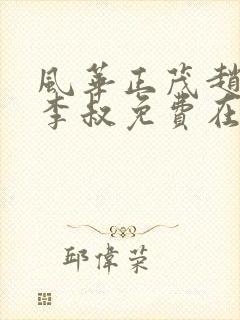 風華正茂趙
李叔免費在
邱偉荣